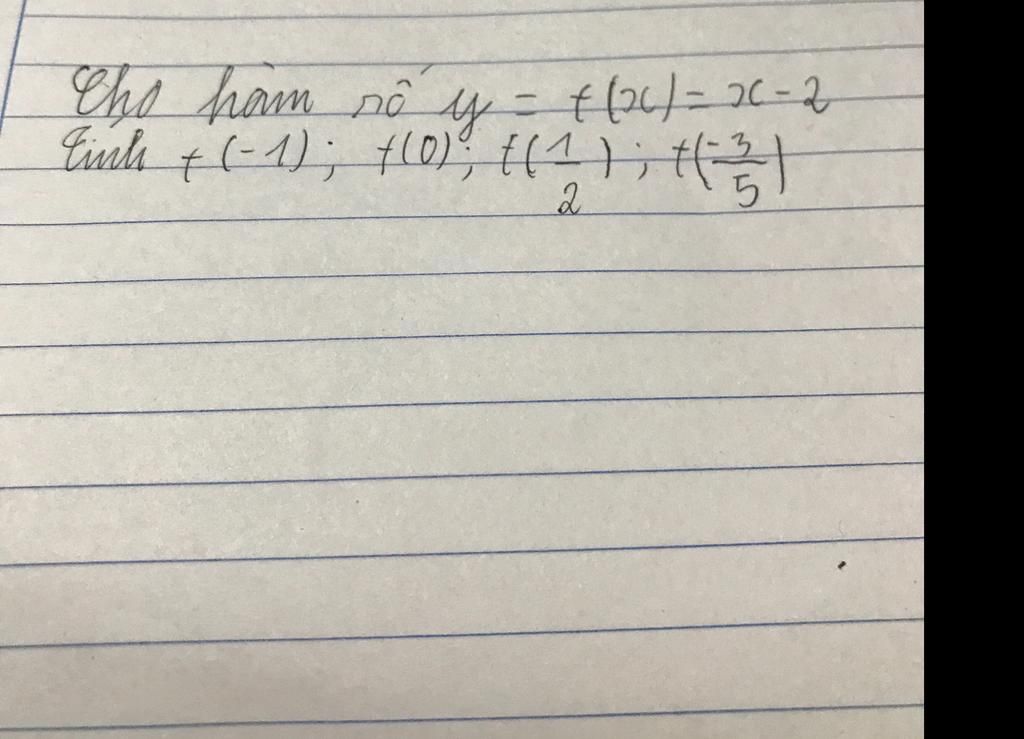 Cho hàm số y = f(x) = x - 2
Tính f(-1); f(0); f(1/2); f(-3/5)